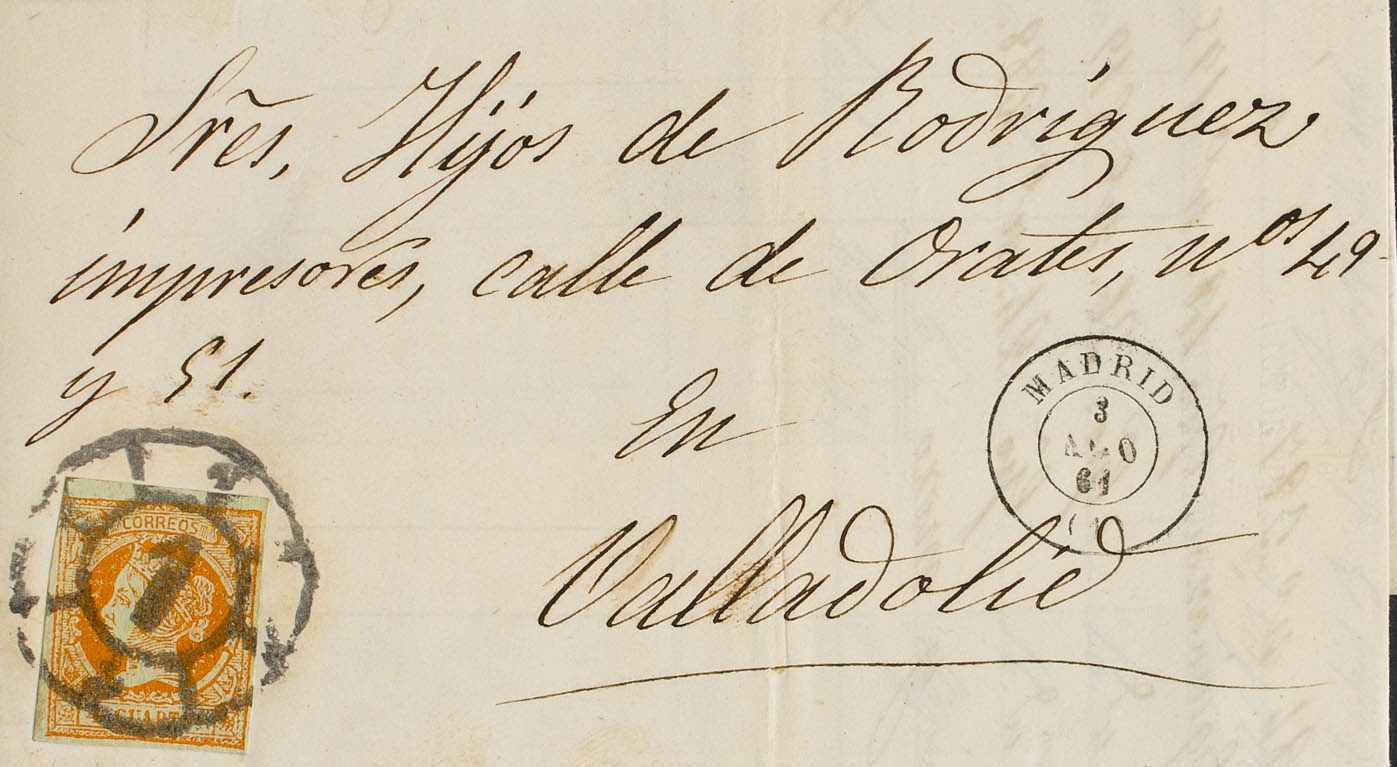 Sr̃es, Hijos de Rodriguez
impresores, calle de Orates, nos 49
y 51.
En
Valladolid
MADRID
3
AGO
61
(1)
CORREOS
1
CUARTOS